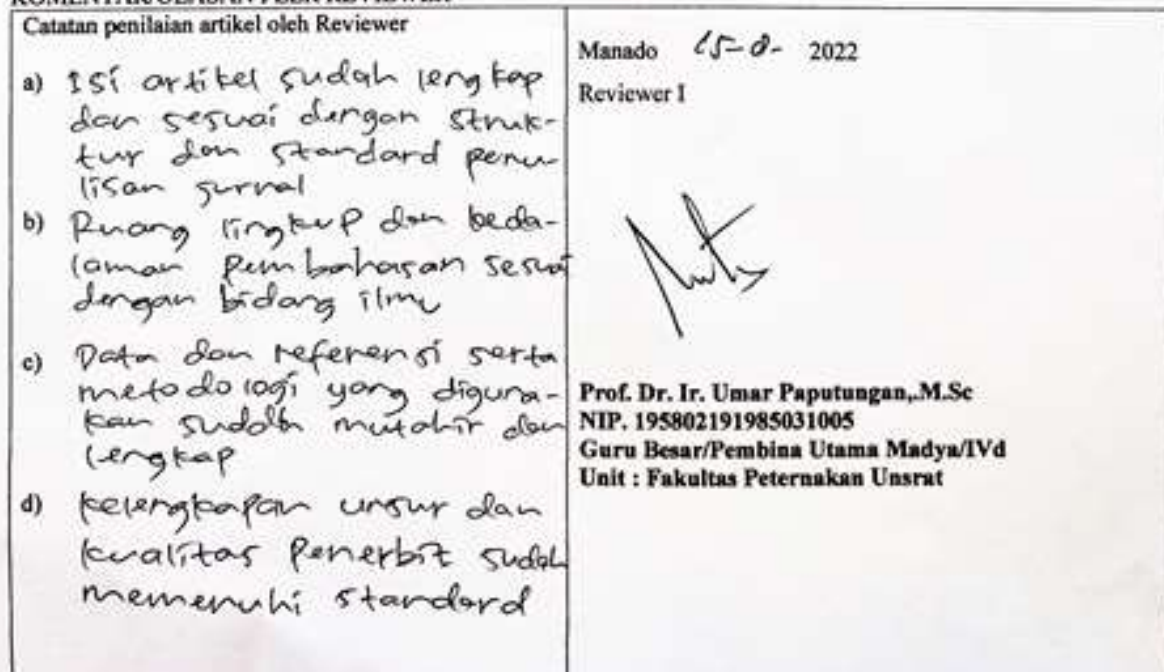 Catatan penilaian artikel oleh Reviewer
a) Isi artikel sudah lengkap
dan sesuai dengan struk-
tur dan standard penu-
lisan jurnal
b) Ruang lingkup dan keda-
laman pembahasan sesuai
dengan bidang ilmu
c) Data dan referensi serta
metodologi yang diguna-
kan sudah mutahir dan
lengkap
d) Kelengkapan unsur dan
kualitas Penerbit sudah
memenuhi standard
Manado 2022
Reviewer I
Prof. Dr. Ir. Umar Paputungan,.M.Sc
NIP. 195802191985031005
Guru Besar/Pembina Utama Madya/IVd
Unit : Fakultas Peternakan Unsrat